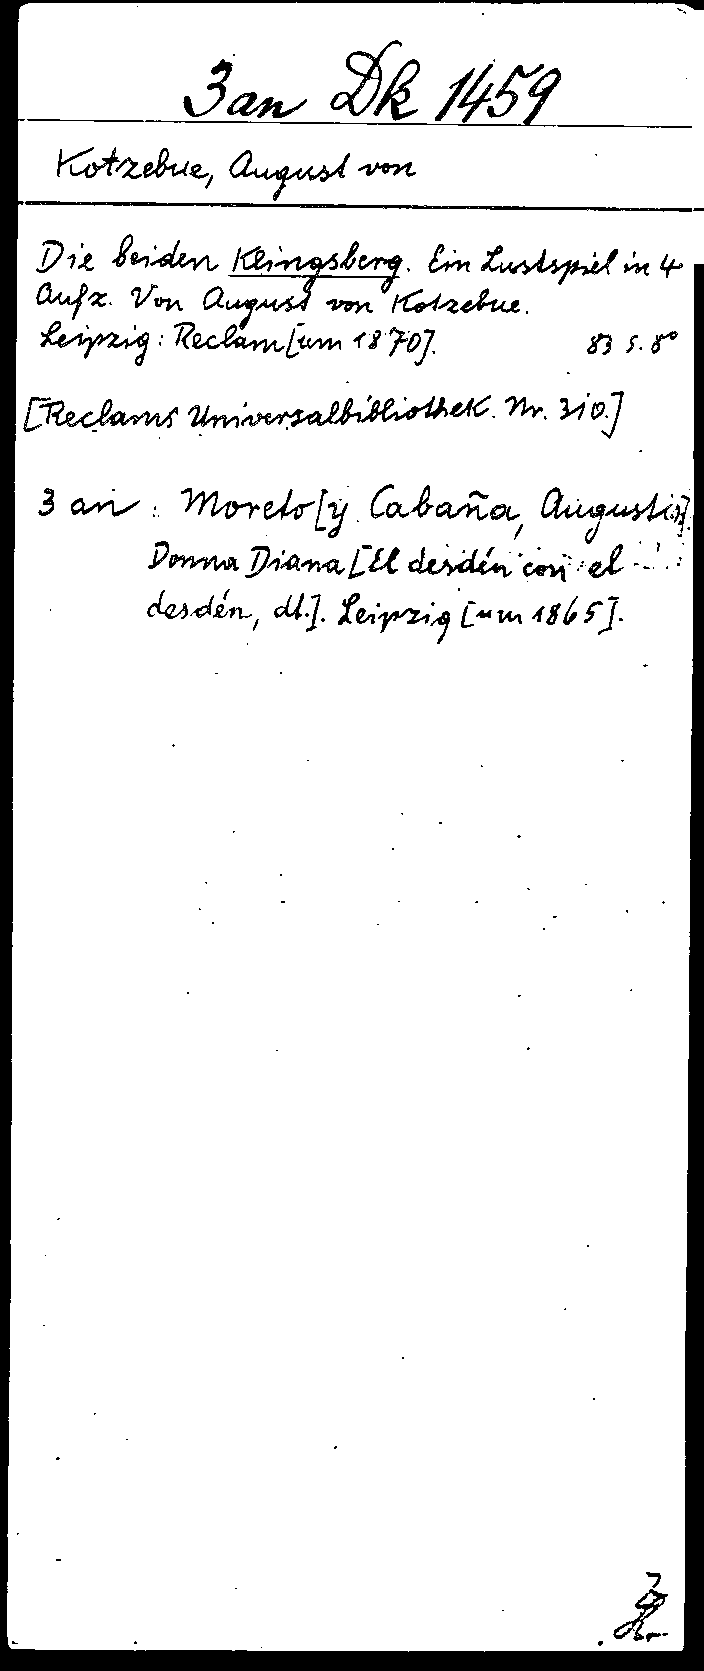 3 an Dk 1459
Kotzebue, August von
Die beiden Klingsberg. Ein Lustspiel in 4
Aufz. Von August von Kotzebue.
Leipzig: Reclam [um 1870]. 83 S. 8°
[Reclams Universalbibliothek. Nr. 310.]
3 an: Moreto [y Cabaña, Augustin].
Donna Diana [El desdén con el
desdén, dt.]. Leipzig [um 1865].